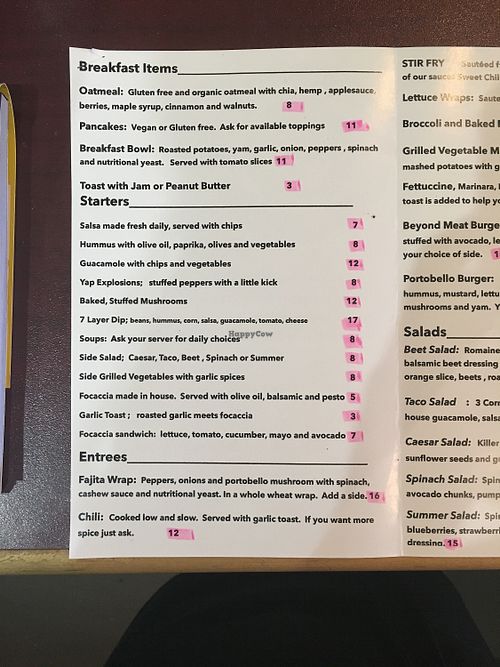 Breakfast Items
Oatmeal: Gluten free and organic oatmeal with chia, hemp , applesauce,
berries, maple syrup, cinnamon and walnuts. 8
Pancakes: Vegan or Gluten free. Ask for available toppings 11
Breakfast Bowl: Roasted potatoes, yam, garlic, onion, peppers , spinach
and nutritional yeast. Served with tomato slices 11
Toast with Jam or Peanut Butter 3
Starters
Salsa made fresh daily, served with chips 7
Hummus with olive oil, paprika, olives and vegetables 8
Guacamole with chips and vegetables 12
Yap Explosions; stuffed peppers with a little kick 8
Baked, Stuffed Mushrooms 12
7 Layer Dip; beans, hummus, corn, salsa, guacamole, tomato, cheese 17
HappyCow
Soups: Ask your server for daily choices 8
Side Salad; Caesar, Taco, Beet , Spinach or Summer 8
Side Grilled Vegetables with garlic spices 8
Focaccia made in house. Served with olive oil, balsamic and pesto 5
Garlic Toast ; roasted garlic meets focaccia 3
Focaccia sandwich: lettuce, tomato, cucumber, mayo and avocado 7
Entrees
Fajita Wrap: Peppers, onions and portobello mushroom with spinach,
cashew sauce and nutritional yeast. In a whole wheat wrap. Add a side. 16
Chili: Cooked low and slow. Served with garlic toast. If you want more
spice just ask. 12
STIR FRY Sautéed
of our sauces Sweet
Lettuce Wraps:
Broccoli and Baked
Grilled Vegetable
mashed potatoes with
Fettuccine, Marinara,
toast is added to help
Beyond Meat Burger
stuffed with avocado,
your choice of side.
Portobello Burger:
hummus, mustard,
mushrooms and yam.
Salads
Beet Salad: Romaine
balsamic beet dressing
orange slice, beets ,
Taco Salad : 3
house guacamole,
Caesar Salad: Killer
sunflower seeds and
Spinach Salad:
avocado chunks,
Summer Salad:
blueberries,
dressing. 15